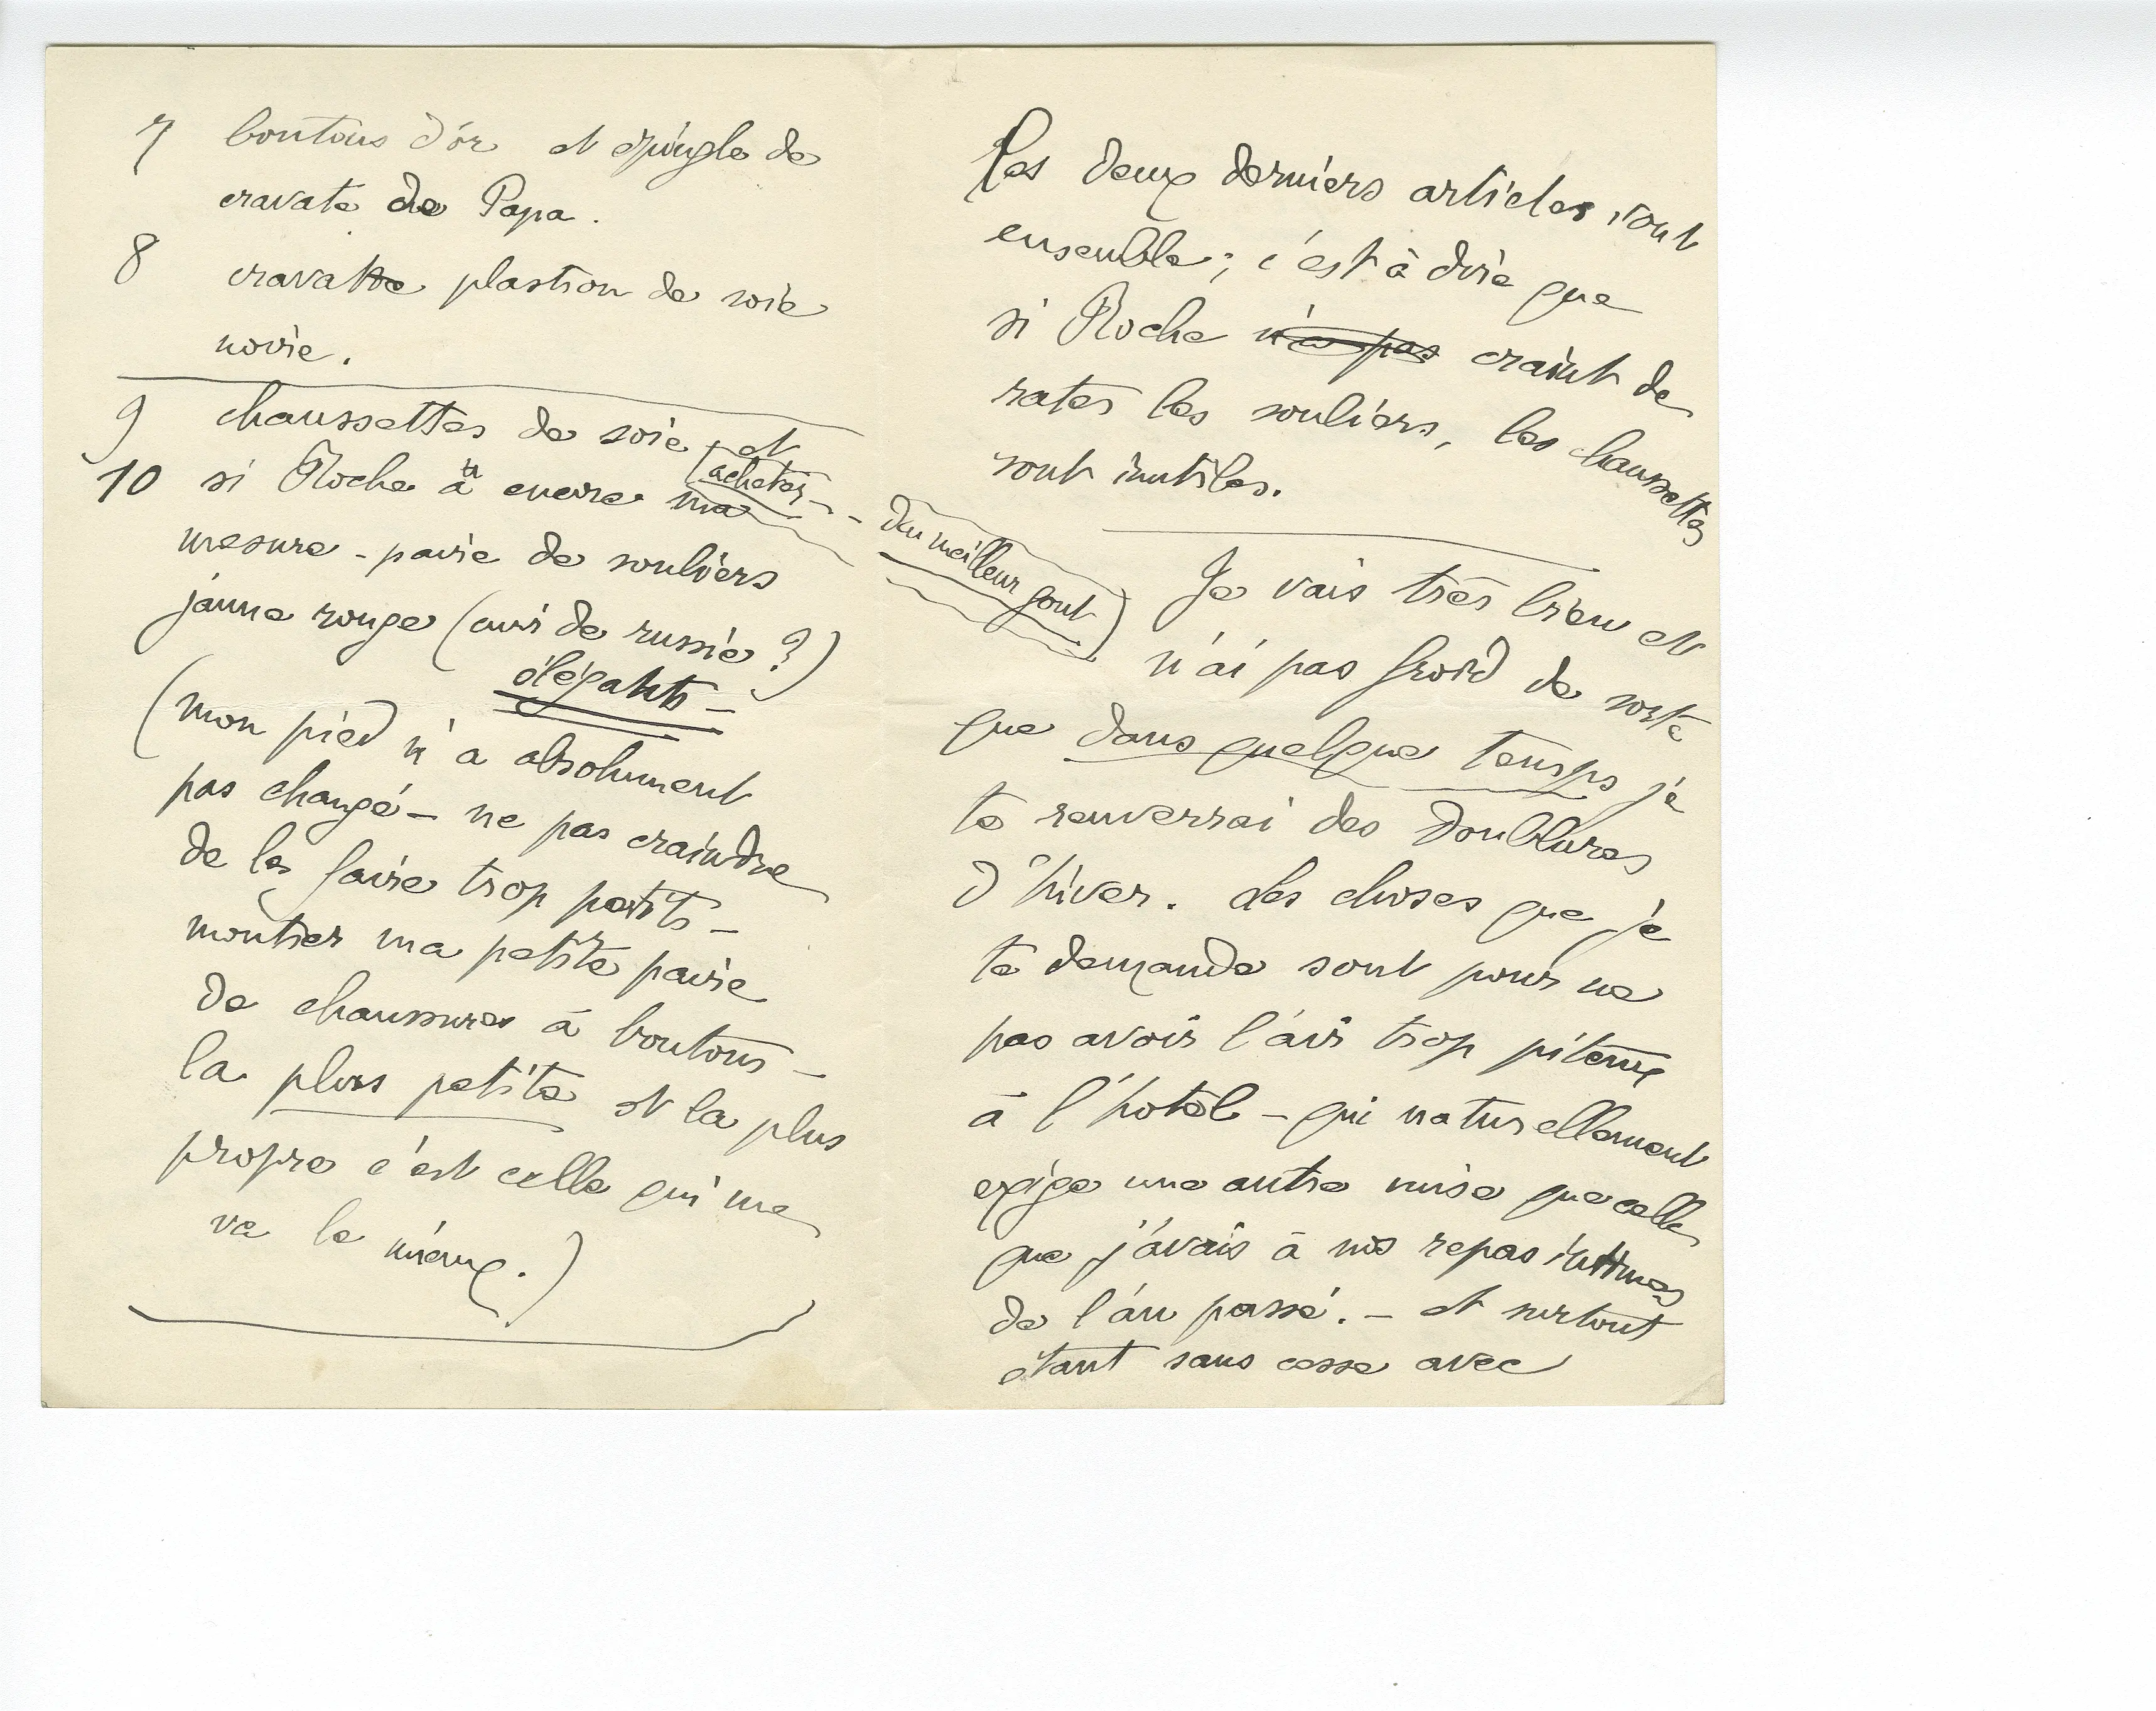 7 boutons d'or et épingle de
cravate de Papa.
8 cravatte plastron de soie
noire.
9 chaussettes de soie et
acheter -
10 si Roche a encore ma
mesure - paire de souliers
jaune rouge (cuir de russie ?)
élégants -
(mon pied n'a absolument
pas changé - ne pas craindre
de les faire trop petits -
montrer ma petite paire
de chaussures à boutons -
la plus petite et la plus
propre c'est celle qui me
va le mieux.)
- du meilleur gout)
Ces deux derniers articles vont
ensemble ; c'est à dire que
si Roche n'a pas craint de
rater les souliers, les chaussettes
sont inutiles.
Je vais très bien et
n'ai pas froid de sorte
que dans quelque temps je
te renverrai des doublures
d'hiver. Les choses que je
te demande sont pour ne
pas avoir l'air trop piteux
à l'hotel - qui naturellement
exige une autre mise que celle
que j'avais à nos repas intimes
de l'an passé. - et surtout
étant sans cesse avec